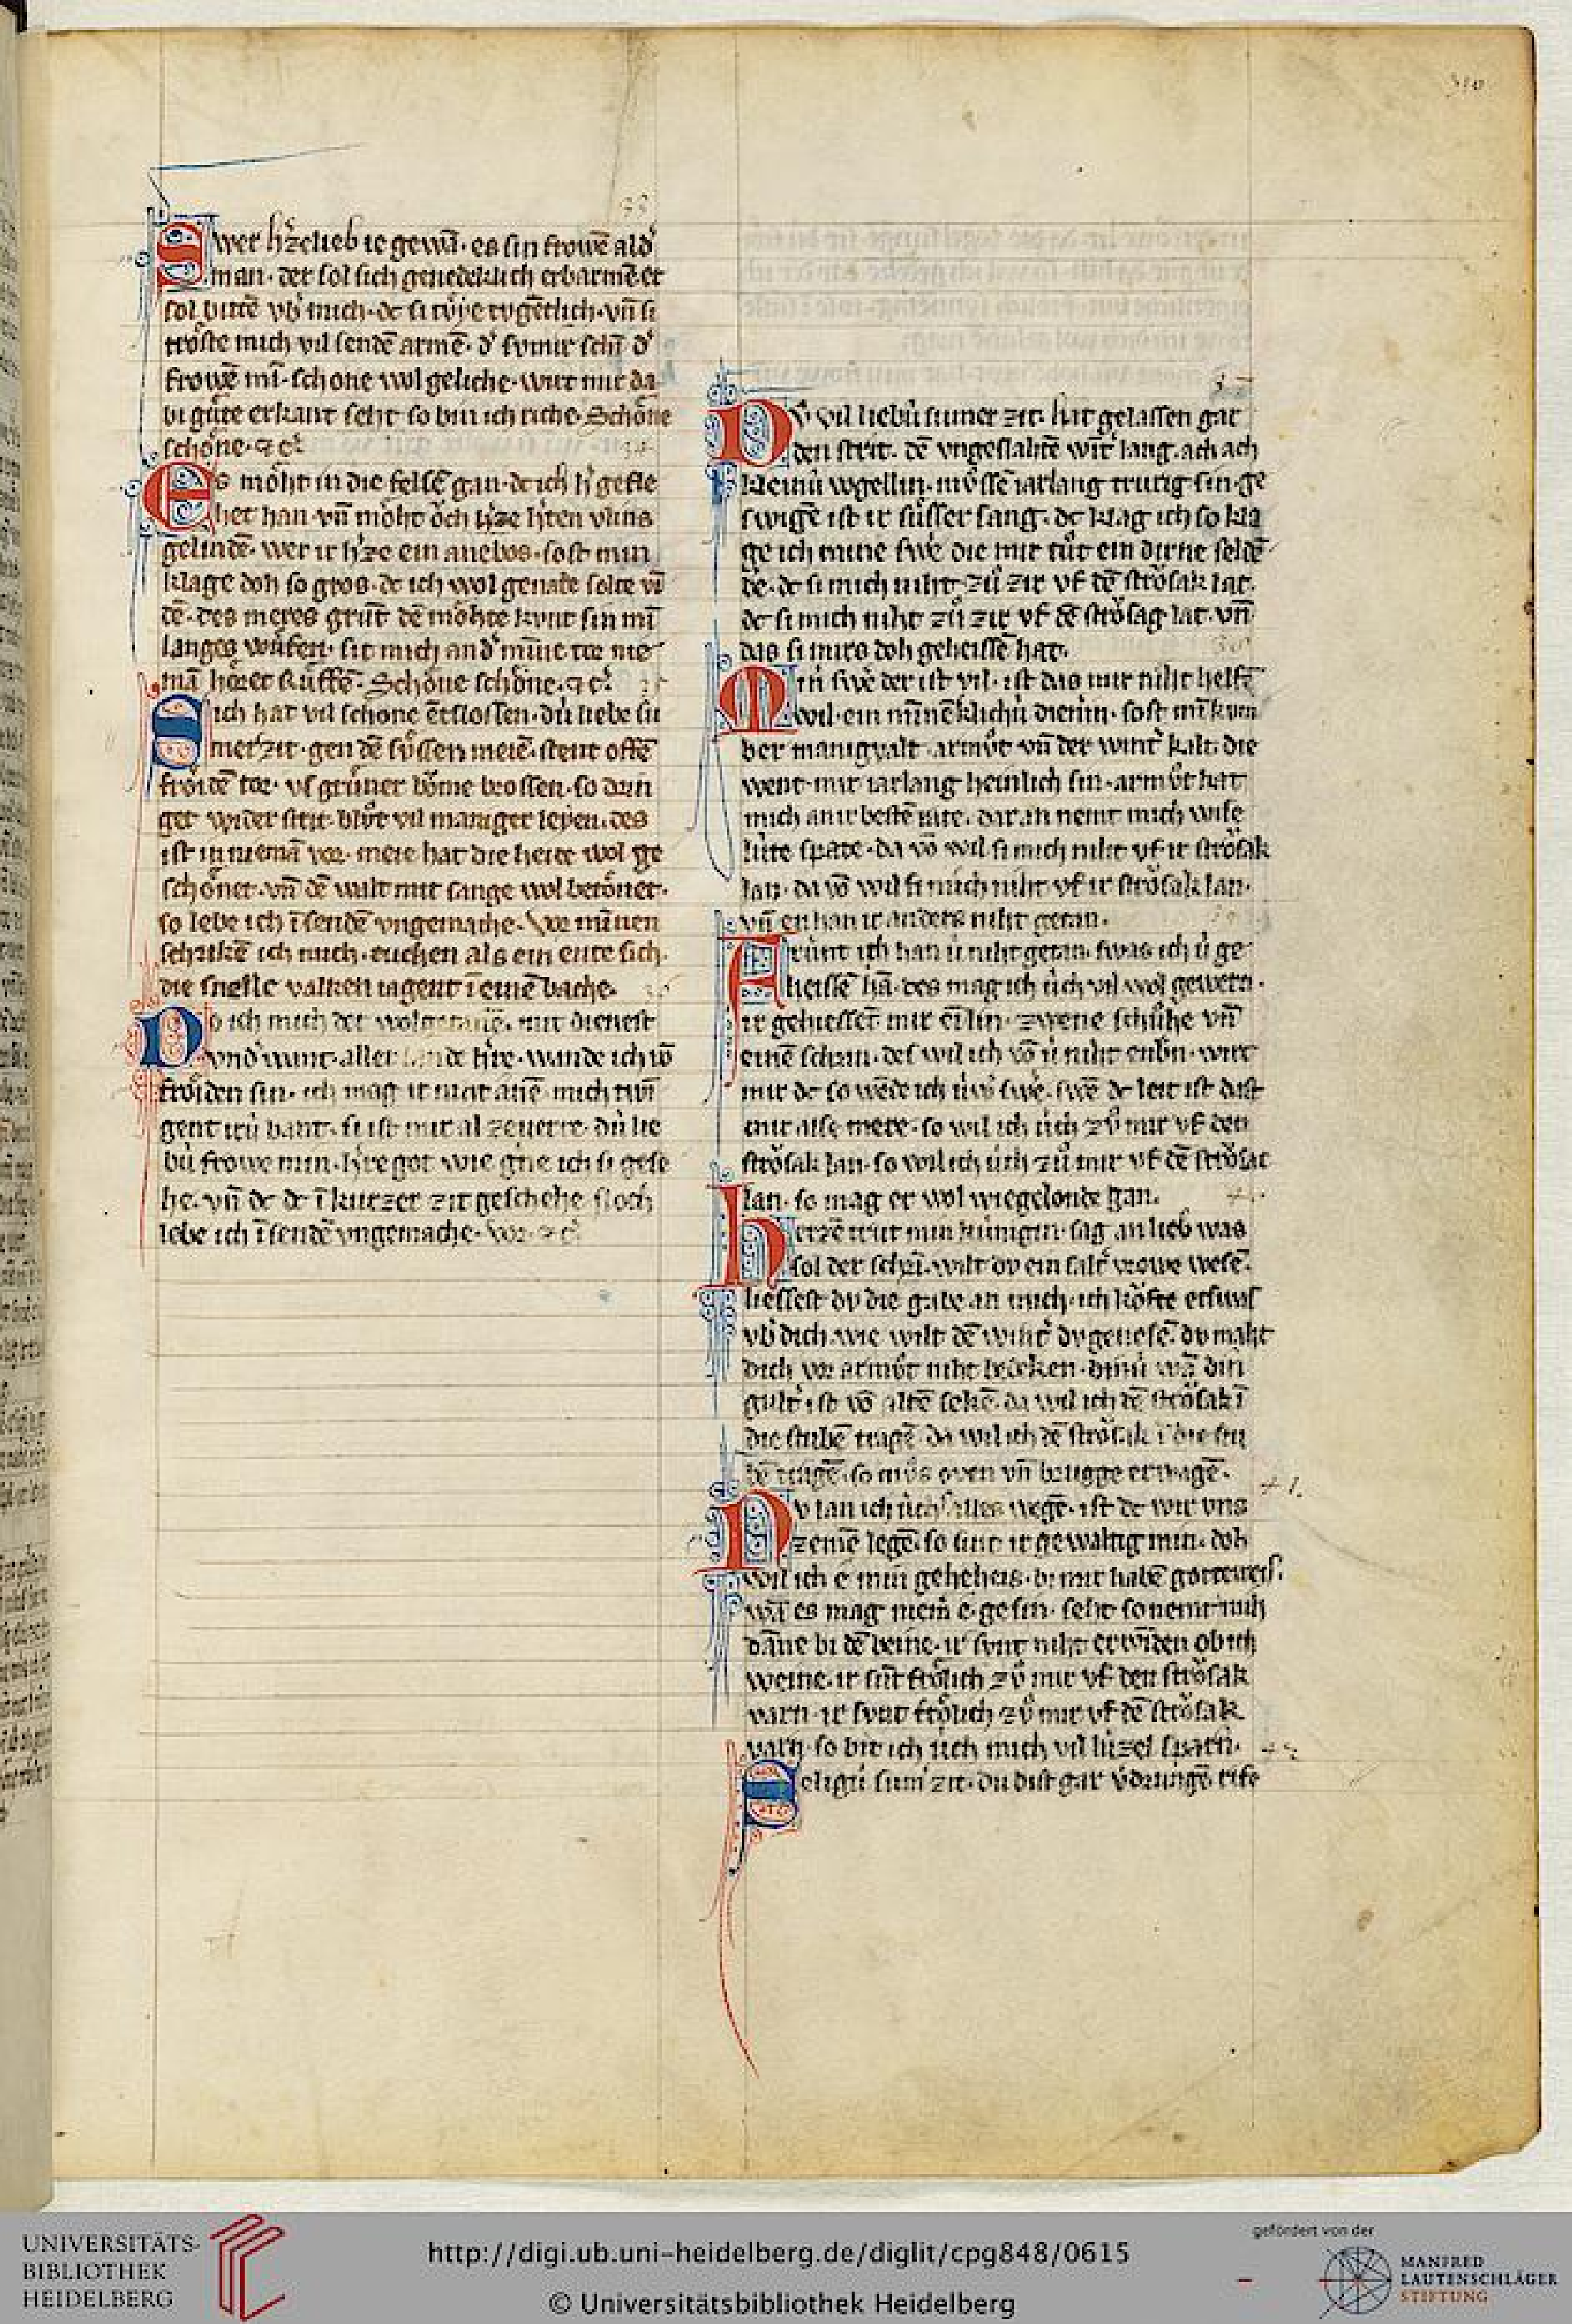 310
33
Swer h͛zelieb ie gewā· es sin frowē ald͛
man· der sol sich genedeklich erbarmē· er
sol bittē vb͛ mich· dc si tv̊ye tvgētlich· vn̄ si
trôste mich vil sendē armē· d͛ svmir schī d͛
frowē mī· schone wol geliche· wirt mir da
bi gůte erkant seht so bin ich riche· Schône
schône· ⁊ c͛·
34
Es môht in die felsē gan· dc ich h͛ gefle
het han· vn̄ môht ôch h͛ze h͛ten vlins
gelindē· wer ir h͛ze ein anebos· so ist min
klage doh so gros· dc ich wol genade solte vī
dē· des meres grūt dē môhte kvnt sin mī
langes wůfen· sit mich and͛ mīne tor nie
mā hôret růffē· Schône schône· ⁊ c͛·
35
Sich hat vil schone ētslossen· dù liebe su
mer zit· gen dē sv̊ssen meiē· stent offē
frôidē tor· vs grůner bôme brossen· so drin
get wider strit· blůt vil maniger leyen· des
ist in niemā vor· meie hat die heide wol ge
schônet· vn̄ dē walt mit sange wol betônet·
so lebe ich ī sendē vngemache· vor mīnen
schrikē ich mich· tuchen als ein ente sich·
die snelle valken iagent ī einē bache·
36
Do ich mich der wolgetanē· mit dienest
vnd͛want· aller hande h͛re· wande ich vō
frôiden sin· ich mag ir niht anē· mich twī
gent irù bant· si ist mir al ze verre· dù lie
bù frowe min· h͛re got wie g͛ne ich si gese
he· vn̄ dc dc ī kurzer zit geschehe· noch
lebe ich ī sendē vngemache· vor· ⁊ c͛·
37
Dv̀ vil liebù sumer zit· hat gelassen gar
den strit· dē vngeslahtē wīt͛ lang· ach ach
kleinù vogellin· mv̊ssē iarlang trurig sin· ge
swigē ist ir sůsser sang· dc klag ich so kla
ge ich mine sw͛e die mir tůt ein dirne seldē
bē· dc si mich niht· zů zir vf dē strôsak lat·
dc si mich niht zů zir vf dē strôsag lat· vn̄
das si mirs doh geheissē hat·
38
Min sw͛e der ist vil· ist das mir niht helfē
wil· ein mīneklichù diern· so ist mī kvm
ber manigvalt· armůt vn̄ der wint͛ kalt· die
went mir iarlang heinlich sin· armůt hat
mich an ir bestē rate· dar an nemt mich wise
lùte spate· da vō wil si mich niht vf ir strôsak
lan· da vō wil si mich niht vf ir strôsak lan·
vn̄ en han ir anders niht getan·
39
Frùnt ich han ù niht getan· swas ich ù ge
heissē hā· des mag ich ùch vil wol gewern·
ir gehiesset mir ein lin· zwene schůhe vn̄
einē schrin· des wil ich vō ù niht enb͛n· wirt
mir dc so wēde ich ùw͛ sw͛e· swē dc leit ist dast
mir alse mere· so wil ich ùch zů mir vf den
strôsak lan· so wil ich ùch zů mir vf dē strôsac
lan· so mag er wol wiegelonde gan·
40
Herzē trut min kùnigin· sag an lieb was
sol der schrī· wilt dv ein salt͛ vrowe wesē·
liessest dv die gabe an mich· ich kôfte etswas
vb͛ dich· wie wilt dē wint͛ dv genesē· dv maht
dich vor armůt niht bedeken· dinù wā din
gult͛ ist vō altē sekē· da wil ich dē strôsak ī
die stubē tragē· da wil ich dē strôsak ī die stu
bē tragē· so mv̊s oven vn̄ brugge erwagē·
41
Nv lan ich ùch alles wegē· ist dc wir vns
zemē legē· so sint ir gewaltig min· doh
wil ich e min geheheis· bi mir habē gotteweis·
wā es mag niem͛ e gesin· seht so nemt mih
dāne bi dē beine· ir svnt niht erwīden ob ich
weine· ir sūt frôlich zů mir vf den strôsak
varn· ir svnt frôlich zů mir vf dē strôsak
varn· so bit ich ùch mich vil lùzel sparn·
42
Seligù sum͛ zit· du bist gar v͛drungē· rife
UNIVERSITÄTS-
BIBLIOTHEK
HEIDELBERG
http://digi.ub.uni-heidelberg.de/diglit/cpg848/0615
© Universitätsbibliothek Heidelberg
gefördert von der
MANFRED
LAUTENSCHLÄGER
STIFTUNG